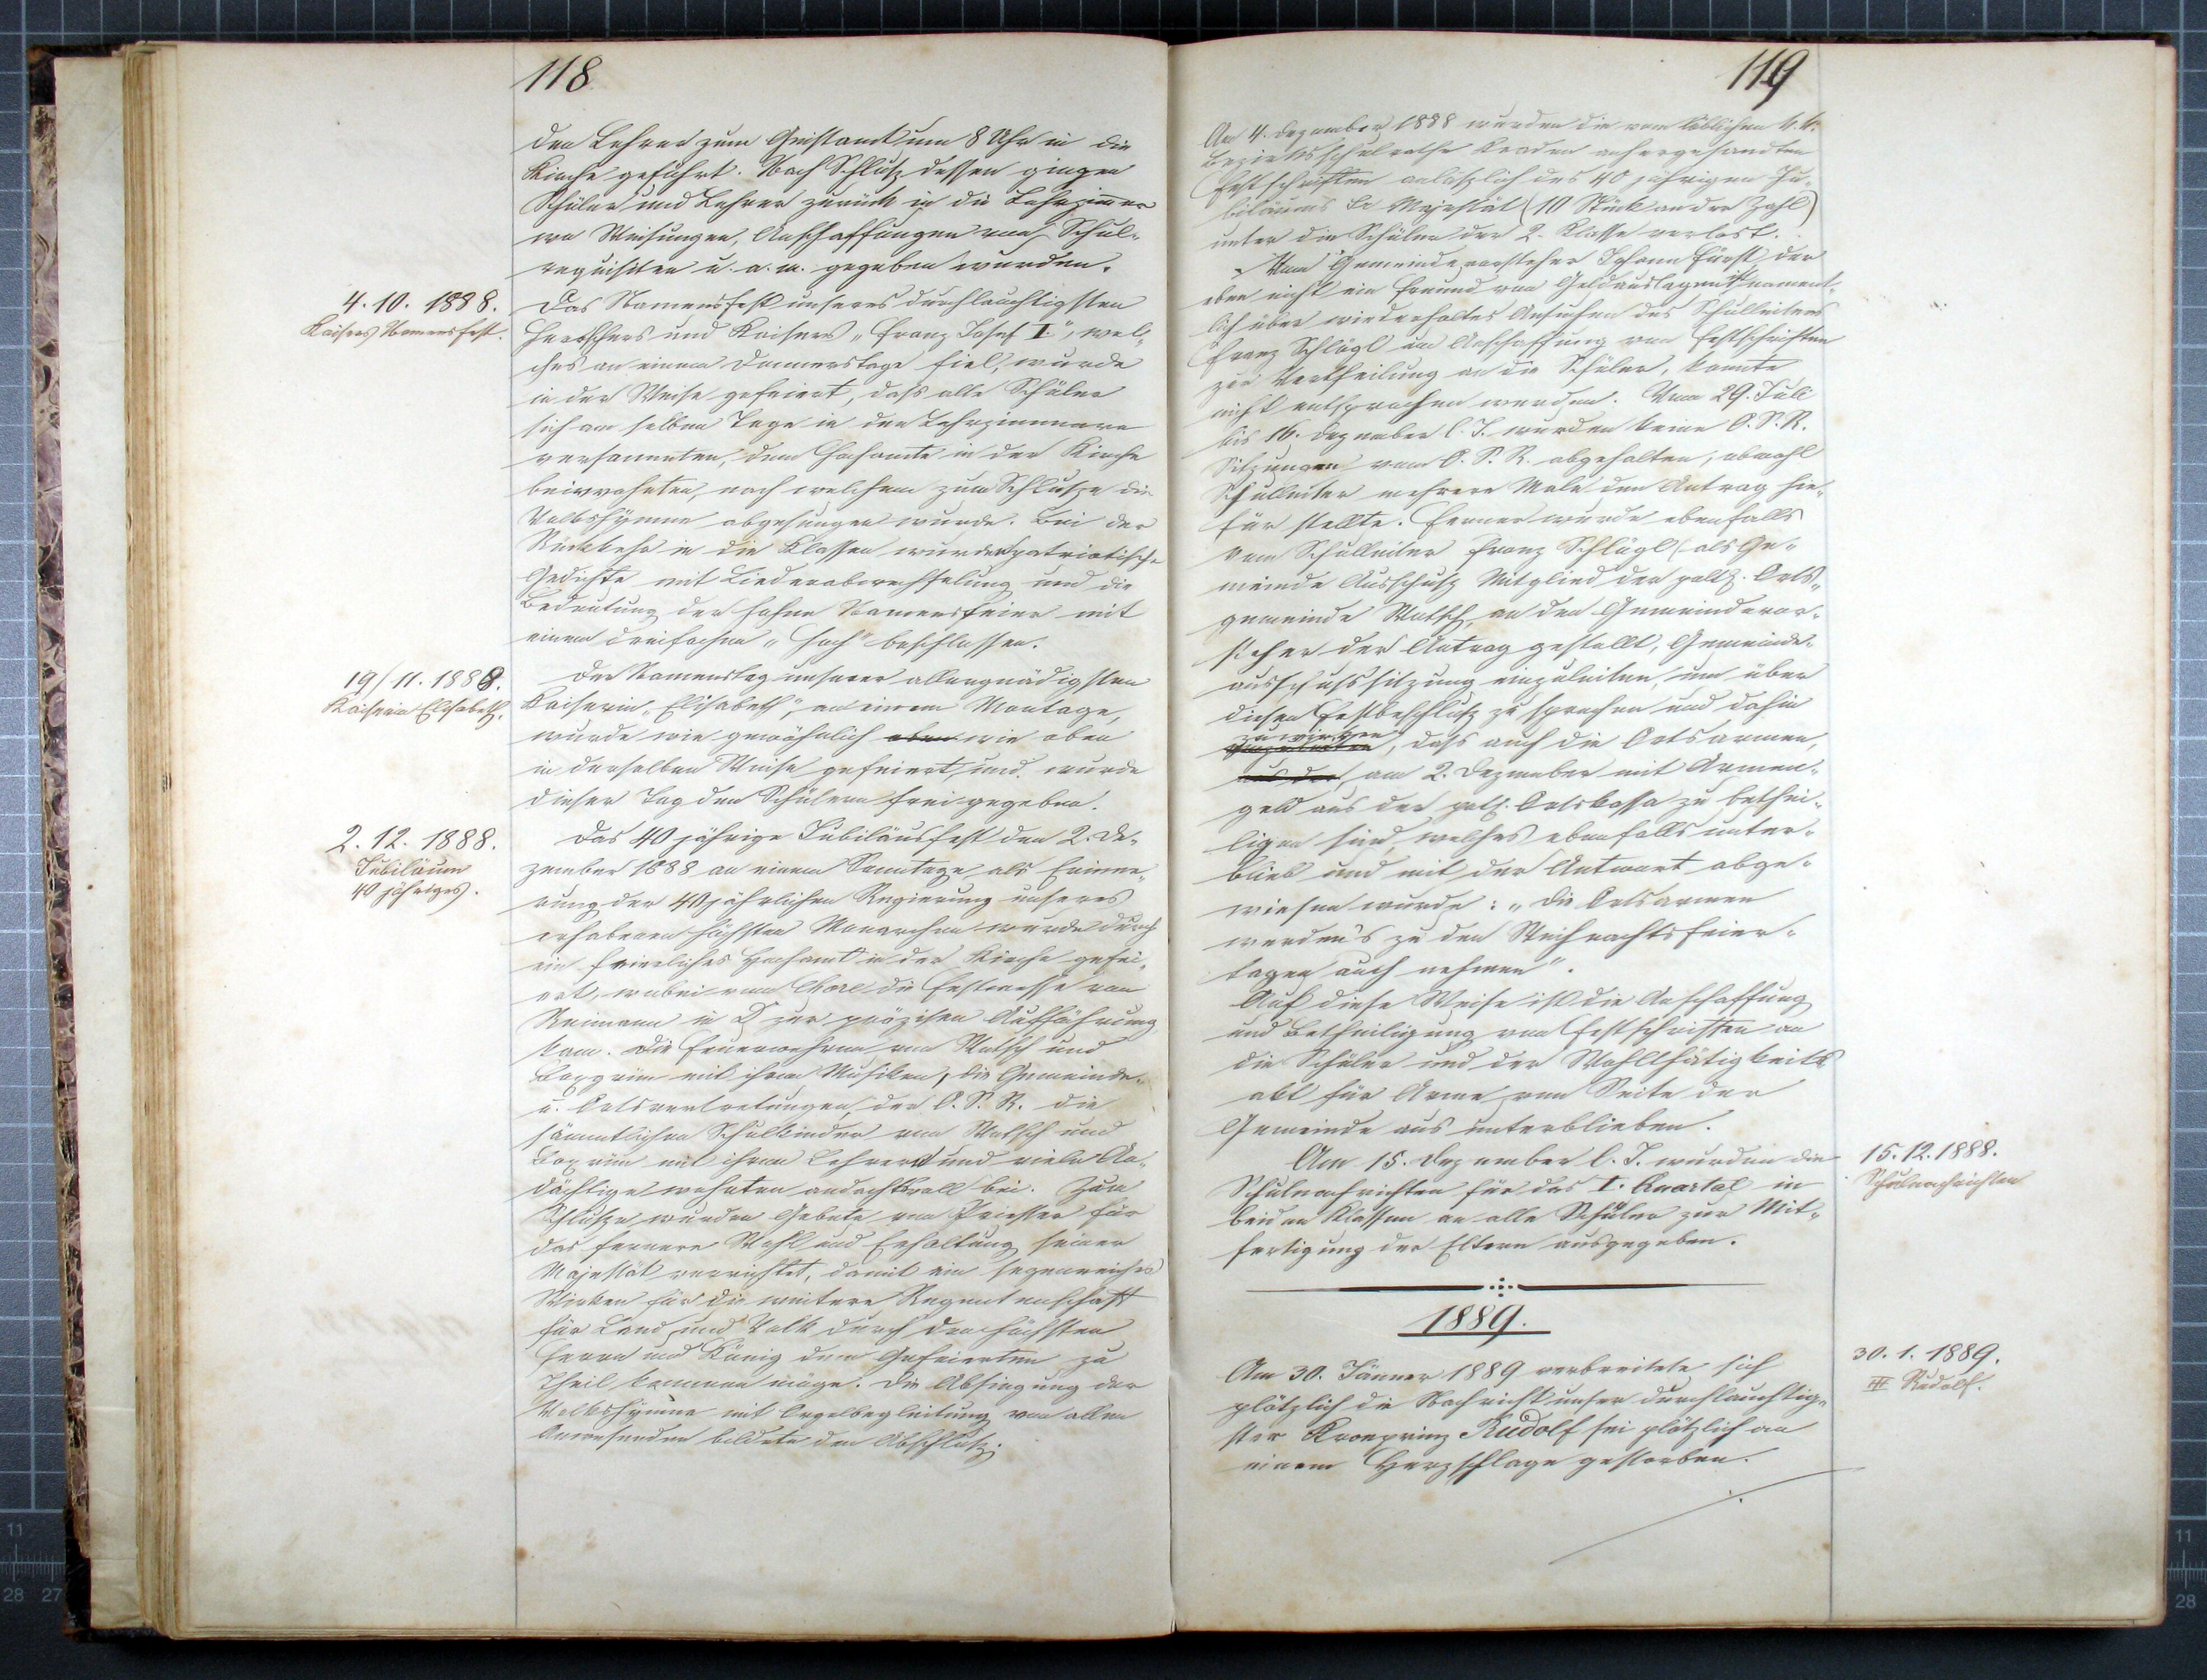 118.
den Lehrer zum Geistamt um 8 Uhr in die
Kirche geführt. Nach Schluß dessen gingen
Schüler und Lehrer zurück in die Lehrzimmer
wo Weisungen, Anschaffungen von Schul-
requisiten u. a. m. gegeben wurden.
4. 10. 1888.
Kaisers Namensfest.
Das Namensfest unseres durchlauchtigsten
Herrschers und Kaisers „Franz Josef I.", wel-
ches an einem Donnerstage fiel, wurde
in der Weise gefeiert, dass alle Schüler
sich am selben Tage in den Lehrzimmern
versammelten, dem Hochamte in der Kirche
beiwohnten, nach welchem zum Schlusse die
Volkshymne abgesungen wurde. Bei der
Rückkehr in die Classen wurden patriotische
Gedichte mit Liederabwechselung und die
Bedeutung der hohen Namensfeier mit
einem dreifachen „Hoch" beschlossen.
19/11. 1888.
Kaiserin Elisabeth.
Der Namenstag unserer allergnädigsten
Kaiserin „Elisabeth", an einem Montage,
wurde wie gewöhnlich oben wie oben
in derselben Weise gefeiert, und wurde
dieser Tag den Schülern frei gegeben.
2. 12. 1888.
Jubiläum
40 jähriges.
Das 40 jährige Jubiläusfest den 2. De-
zember 1888 an einem Sonntage, als Erinne-
rung der 40 jährlichen Regierung unseres
erhabenen höchsten Monarchen wurde durch
ein feierliches Hochamt in der Kirche gefei-
ert, wobei vom Chore die Festmesse von
Reimann in D zur präzisen Aufführung
kam. Die Feuerwehren von Watsch und
Boxgrün mit ihren Musiken, die Gemeinde-
u. Ortsvertretungen, der O. S. R. die
sämmtlichen Schulkinder von Watsch und
Boxgrün mit ihren Lehrern und viele An-
dächtige wohnten andachtsvoll bei. Zum
Schlusse wurden Gebete vom Priester für
das fernere Wohl und Erhaltung seiner
Majestät verrichtet, damit ein segenreiches
Wirken für die weitere Regentenschaft
für Land und Volk durch den höchsten
Herrn und König dem Gefeierten zu
Theil kommen möge. Die Absingung der
Volkshymne mit Orgelbegleitung von allen
Anwesenden bildete den Abschluß.
119
Am 4. Dezember 1888 wurden die vom löblichen k. k.
Bezirksschulrathe Kaaden anhergesandten
Festschriften anläßlich des 40 jährigen Ju-
biläums Sr Majestät (10 Stück an der Zahl)
unter die Schüler der 2. Classe verlost.
Vom Gemeindevorsteher Johann Fürst, der
eben nicht ein Freund von Geldauslagen ist nament-
lich über wiederholtes Ansuchen des Schulleiters
Franz Schlögl um Anschaffung von Festschriften
zur Vertheilung an die Schüler, konnte
nicht entsprochen werden. Vom 29. Juli
bis 16. Dezember l. J. wurden keine O. S. R.
Sitzungen vom O. S. R. abgehalten, obwohl
Schulleiter mehrere Male den Antrag hie-
für stellte. Ferner wurde ebenfalls
vom Schulleiter Franz Schlögl (als Ge-
meinde Ausschuß Mitglied der polt. Orts-
gemeinde Watsch, an den Gemeindevor-
steher der Antrag gestellt, Gemeinde-
ausschußsitzung einzuleiten, um über
diesen Festbeschluß zu sprechen und dahin
zu wirken
, dass auch die Ortsarmen,
aus der, am 2. Dezember mit Armen-
geld aus der polt. Ortskassa zu bethei-
ligen sind, welches ebenfalls unter-
blieb und mit der Antwort abge-
wiesen wurde: „die Ortsarmen
werden's zu den Weihnachtsfeier-
tagen auch nehmen".
Auf diese Weise ist die Anschaffung
und Betheiligung von Festschriften an
die Schüler und der Wohlthätigkeits
akt für Arme von Seite der
Gemeinde aus unterblieben.
15. 12. 1888.
Schulnachrichten
Am 15. Dezember l. J. wurden die
Schulnachrichten für das I. Quartal in
beiden Klassen an alle Schüler zur Mit-
fertigung der Eltern ausgegeben.
1889.
30. 1. 1889.
Rudolf.
Am 30. Jänner 1889 verbreitete sich
plötzlich die Nachricht unser durchlauchtig-
ster Kronprinz Rudolf sei plötzlich an
einem Herzschlage gestorben.
11
28 27
11
28